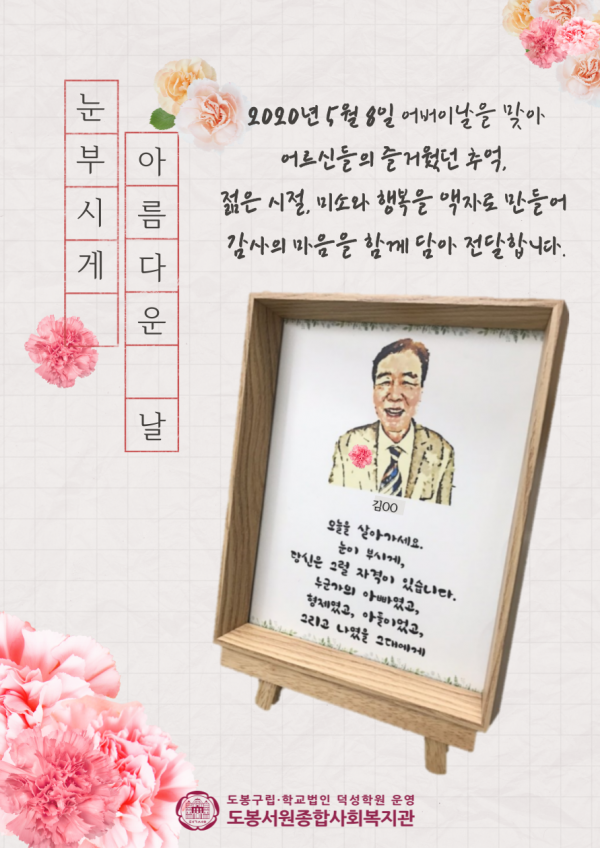 눈부시게
아름다운 날
2020년 5월 8일 어버이날을 맞아
어르신들의 즐거웠던 추억,
젊은 시절, 미소와 행복을 액자로 만들어
감사의 마음을 함께 담아 전달합니다.
김OO
오늘을 살아가세요.
눈이 부시게,
당신은 그럴 자격이 있습니다.
누군가의 아빠였고,
형제였고, 아들이었고,
그리고 나였을 그대에게
도봉구립·학교법인 덕성학원 운영
도봉서원종합사회복지관